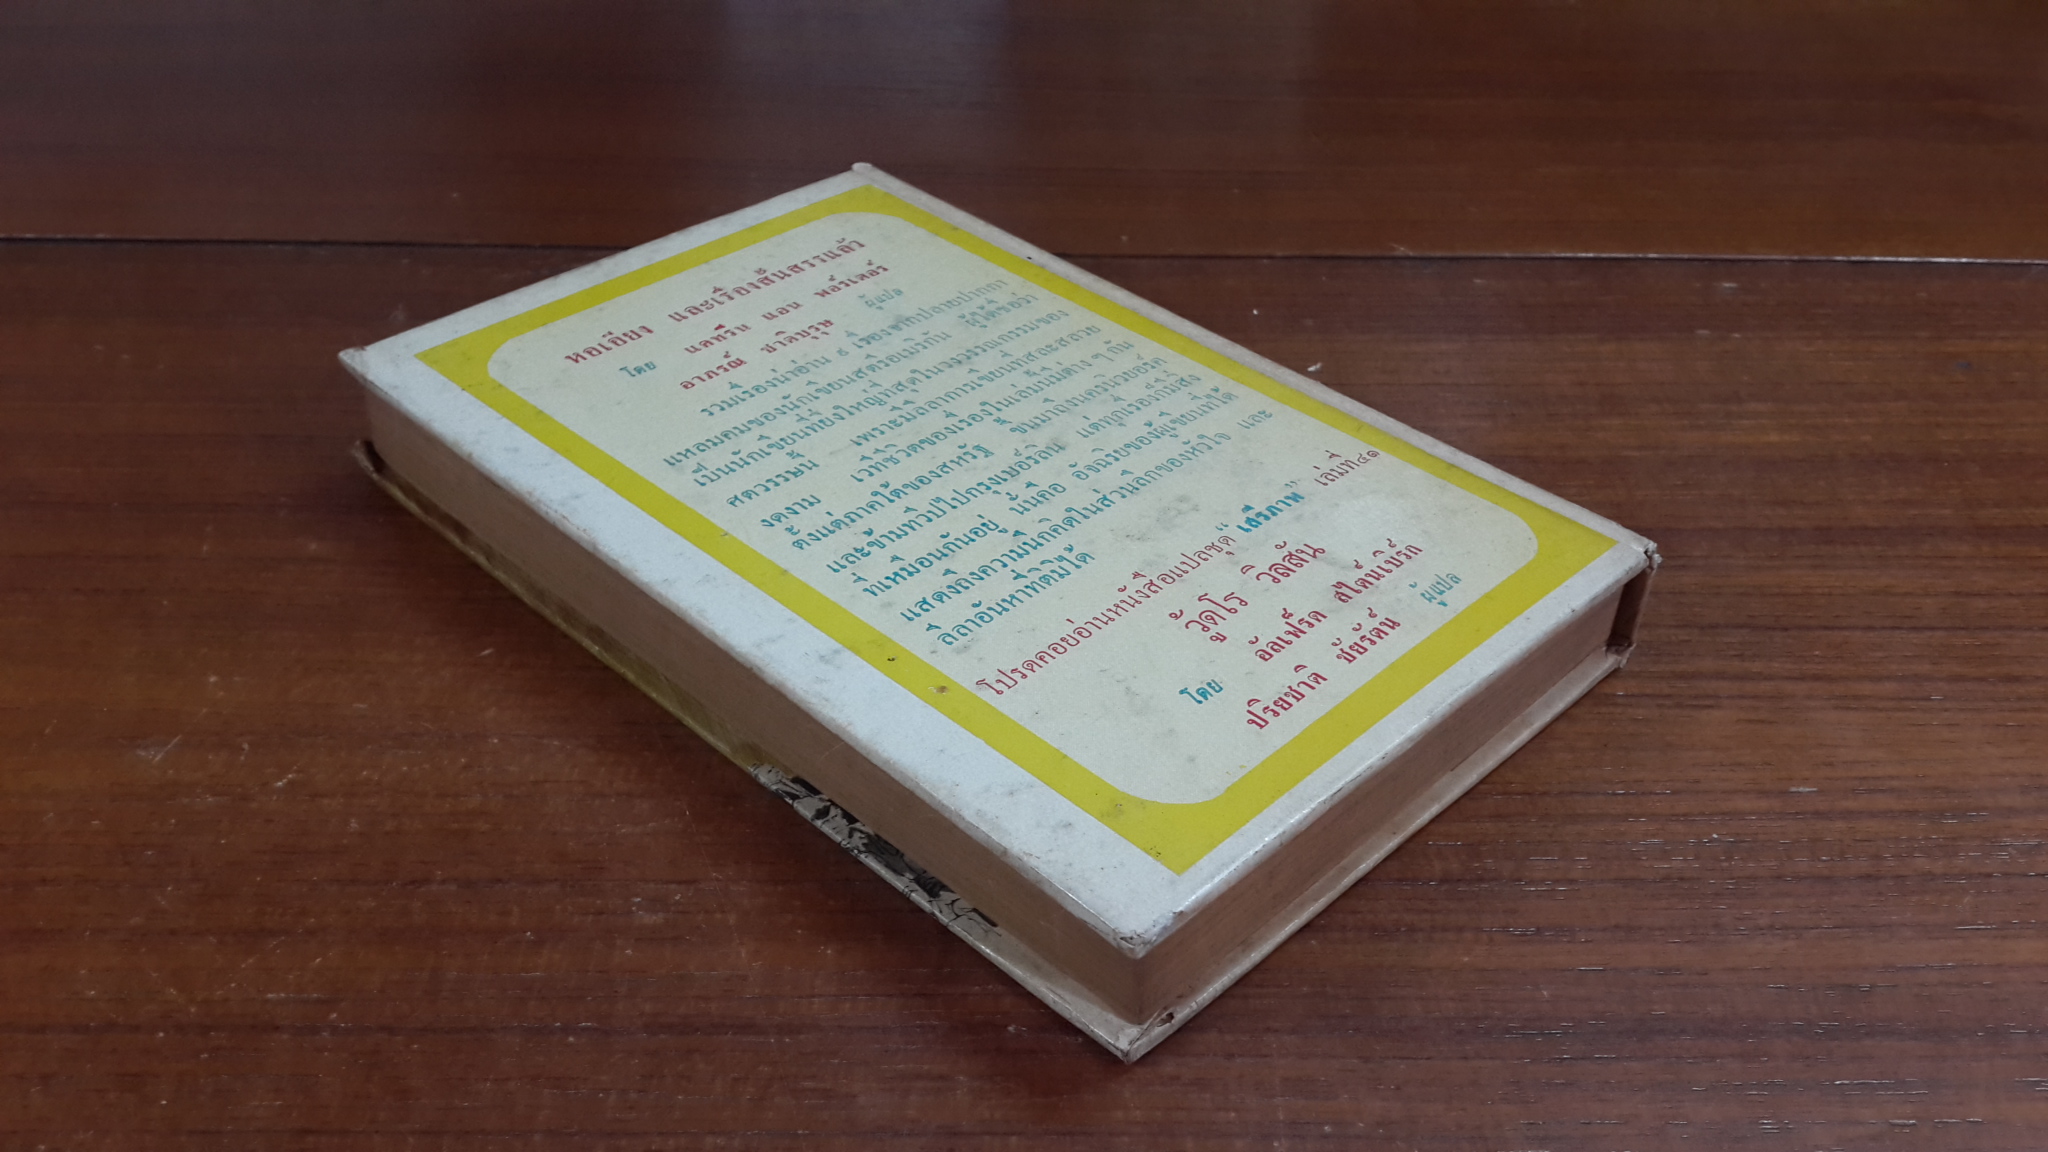 หอเอียง และเรื่องสั้นสรรแล้ว
โดย แคทีรีน แอน พอร์เตอร์
อาภรณ์ ชาติบุรุษ ผู้แปล
รวมเรื่องน่าอ่าน ๕ เรื่อง จากปลายปากกา
แหลมคมของนักเขียนสตรีอเมริกัน ผู้ได้ชื่อว่า
เป็นนักเขียนที่ยิ่งใหญ่ที่สุดในวงวรรณกรรมของ
ศตวรรษนี้ เพราะมีลีลาการเขียนที่สละสลวย
งดงาม เวทีชีวิตของเรื่องในเล่มนี้มีต่าง ๆ กัน
ตั้งแต่ภาคใต้ของสหรัฐ ขึ้นมาถึงนครนิวยอร์ค
และข้ามทวีปไปกรุงเบอร์ลิน แต่ทุกเรื่องก็มีสิ่ง
ที่เหมือนกันอยู่ นั่นคือ อัจฉริยของผู้เขียนที่ได้
แสดงถึงความนึกคิดในส่วนลึกของหัวใจ และ
ลีลาอันหาที่ติมิได้
โปรดคอยอ่านหนังสือแปลชุด “เสรีภาพ” เล่มที่๔๑
วู้ดโร วิลสัน
โดย อัลเฟร็ด สไตน์เบิร์ก
ปริยชาติ ชัยรัตน์ ผู้แปล